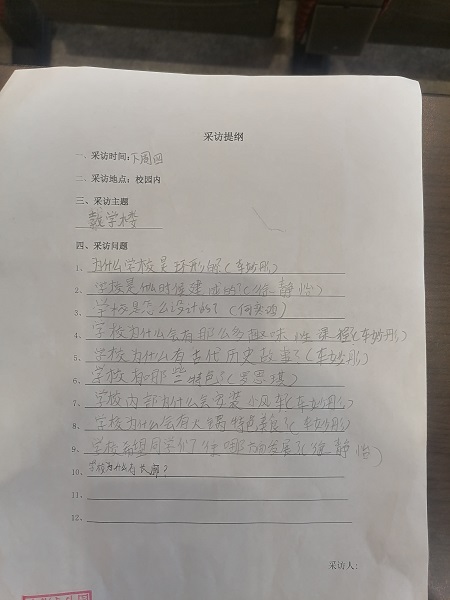 采访提纲
一、采访时间：下周四
二、采访地点：校园内
三、采访主题
教学楼
四、采访问题
1、为什么学校是环形的？（车妙彤）
2、学校是什么时候建成的？（徐静怡）
3、学校是怎么设计的？（何奕
4、学校为什么会有那么多趣味性课程？（车妙彤）
5、学校为什么有古代历史故事？（车妙彤）
6、学校有哪些特色？（罗思琪）
7、学校内部为什么会安装小风车？（车妙彤）
8、学校为什么会有火锅特色
9、学校希望同学们往哪方面发展？（徐静怡）
10、学校为什么有长廊？
11、
12、
采访人：